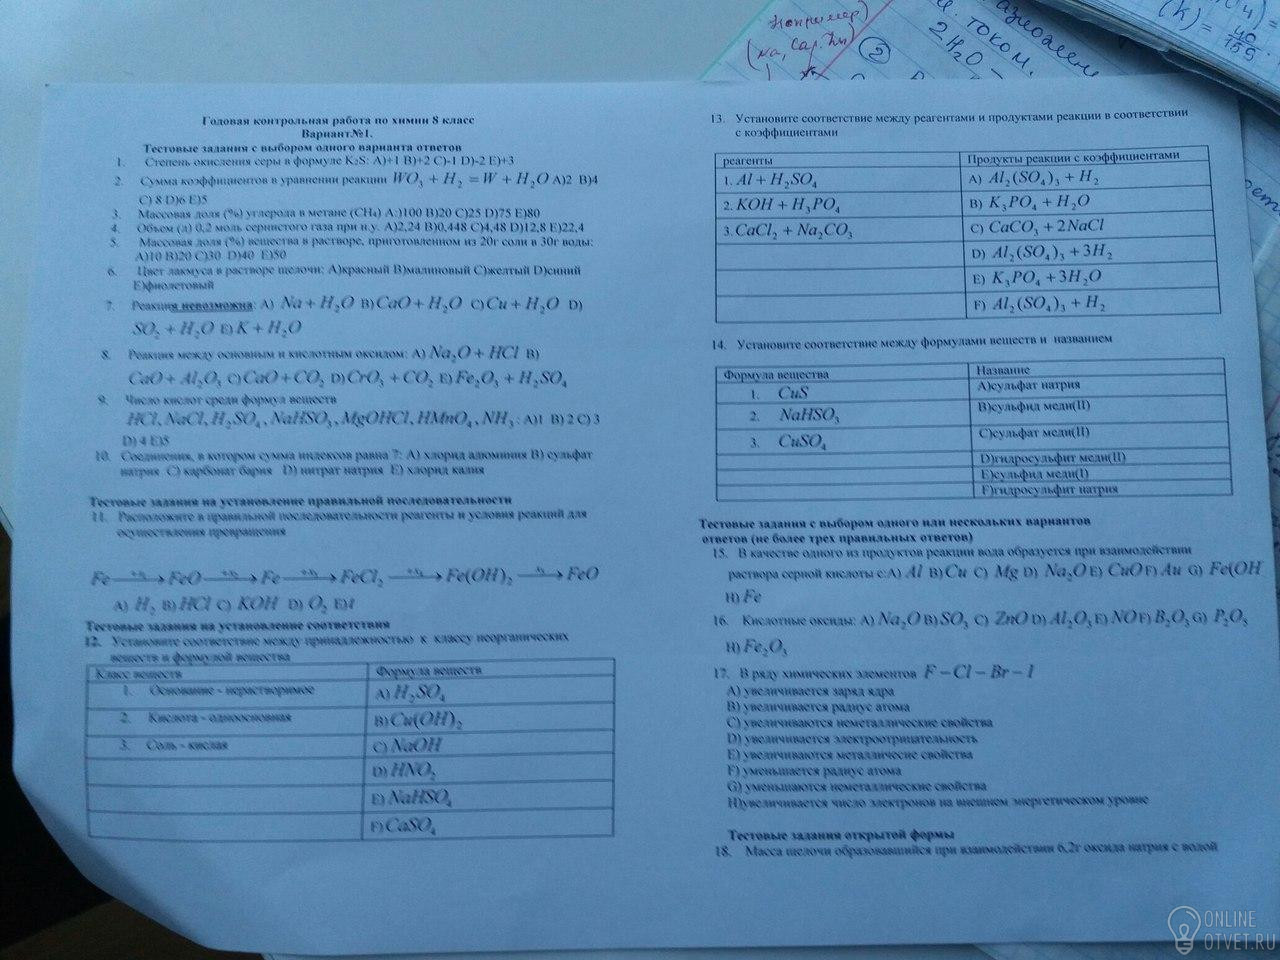 Например)
(Na, Ca
2
током.
2H₂O –
(K) = 40/159
Годовая контрольная работа по химии 8 класс
Вариант№1.
Тестовые задания с выбором одного варианта ответов
1. Степень окисления серы в формуле K₂S: A)+1 B)+2 C)-1 D)-2 E)+3
2. Сумма коэффициентов в уравнении реакции WO₃ + H₂ = W + H₂O A)2 B)4
C) 8 D)6 E)5
3. Массовая доля (%) углерода в метане (CH₄) A.)100 B)20 C)25 D)75 E)80
4. Объем (л) 0,2 моль сернистого газа при н.у. A)2,24 B)0,448 C)4,48 D)12,8 E)22,4
5. Массовая доля (%) вещества в растворе, приготовленном из 20г соли в 30г воды:
A)10 B)20 C)30 D)40 E)50
6. Цвет лакмуса в растворе щелочи: A)красный B)малиновый C)желтый D)синий
E)фиолетовый
7. Реакция невозможна: A) Na + H₂O B) CaO + H₂O C) Cu + H₂O D)
SO₂ + H₂O E) K + H₂O
8. Реакция между основным и кислотным оксидом: A) Na₂O + HCl B)
CaO + Al₂O₃ C) CaO + CO₂ D) CrO₃ + CO₂ E) Fe₂O₃ + H₂SO₄
9. Число кислот среди формул веществ
HCl, NaCl, H₂SO₄, NaHSO₃, MgOHCl, HMnO₄, NH₃: A)1 B) 2 C) 3
D) 4 E)5
10. Соединения, в котором сумма индексов равна 7: A) хлорид алюминия B) сульфат
натрия C) карбонат бария D) нитрат натрия E) хлорид калия
Тестовые задания на установление правильной последовательности
11. Расположите в правильной последовательности реагенты и условия реакций для
осуществления превращения
Fe → FeO → Fe → FeCl₂ → Fe(OH)₂ → FeO
A) H₂ B) HCl C) KOH D) O₂ E) t
Тестовые задания на установление соответствия
12. Установите соответствие между принадлежностью к классу неорганических
веществ и формулой вещества
Класс веществ Формула веществ
1. Основание - нерастворимое A) H₂SO₄
2. Кислота - одноосновная B) Cu(OH)₂
3. Соль - кислая C) NaOH
D) HNO₂
E) NaHSO₄
F) CaSO₄
13. Установите соответствие между реагентами и продуктами реакции в соответствии
с коэффициентами
реагенты Продукты реакции с коэффициентами
1. Al + H₂SO₄ A) Al₂(SO₄)₃ + H₂
2. KOH + H₃PO₄ B) K₃PO₄ + H₂O
3. CaCl₂ + Na₂CO₃ C) CaCO₃ + 2NaCl
D) Al₂(SO₄)₃ + 3H₂
E) K₃PO₄ + 3H₂O
F) Al₂(SO₄)₃ + H₂
14. Установите соответствие между формулами веществ и названием
Формула вещества Название
1. CuS A)сульфат натрия
2. NaHSO₃ B)сульфид меди(II)
3. CuSO₄ C)сульфат меди(II)
D)гидросульфит меди(II)
E)сульфид меди(I)
F)гидросульфит натрия
Тестовые задания с выбором одного или нескольких вариантов
ответов (не более трех правильных ответов)
15. В качестве одного из продуктов реакции вода образуется при взаимодействии
раствора серной кислоты с:A) Al B) Cu C) Mg D) Na₂O E) CuO F) Au G) Fe(OH
H) Fe
16. Кислотные оксиды: A) Na₂O B) SO₃ C) ZnO D) Al₂O₃ E) NO F) B₂O₃ G) P₂O₅
H) Fe₂O₃
17. В ряду химических элементов F – Cl – Br – I
A) увеличивается заряд ядра
B) увеличивается радиус атома
C) увеличиваются неметаллические свойства
D) увеличивается электроотрицательность
E) увеличиваются металличесие свойства
F) уменьшается радиус атома
G) уменьшаются неметаллические свойства
H)увеличивается число электронов на внешнем энергетическом уровне
Тестовые задания открытой формы
18. Масса щелочи образовавшийся при взаимодействии 6,2г оксида натрия с водой
ONLINE
OTVET.RU